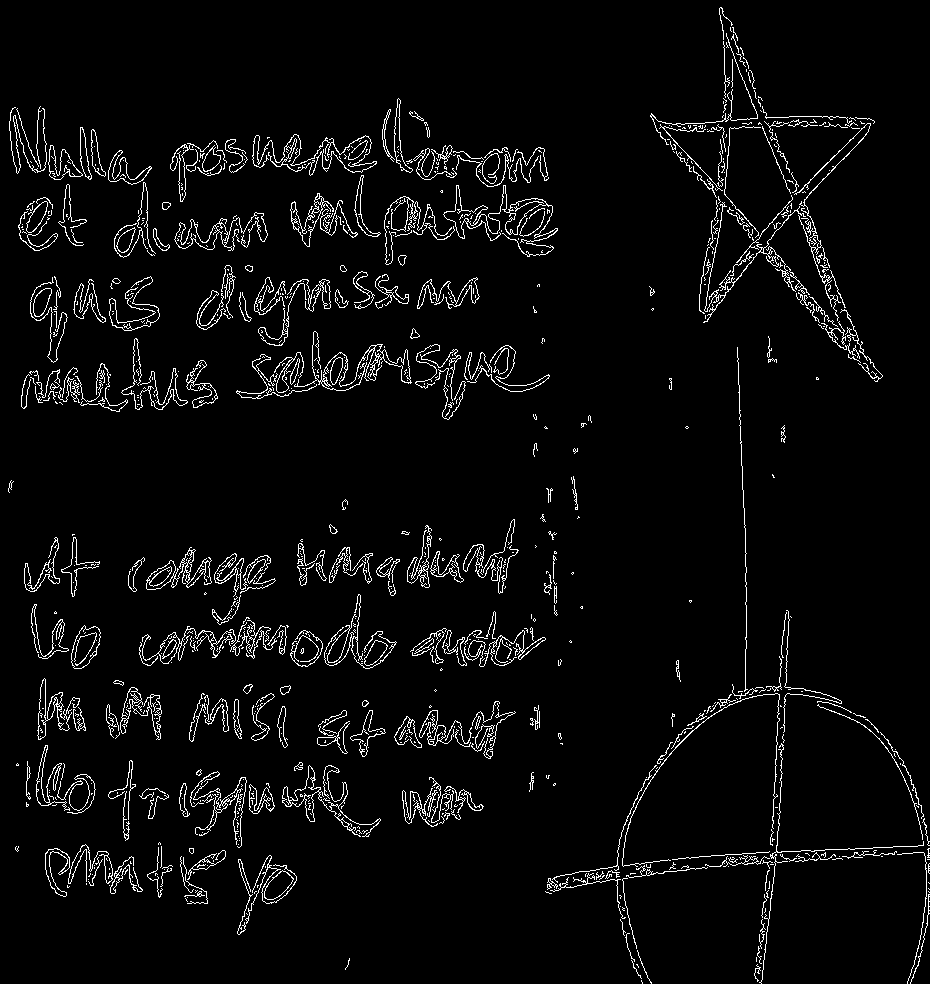 Nulla posuere lorem
et diam vulputate
quis dignissim
metus scelerisque
Ut congue tincidunt
leo commodo auctor
In in nisi sit amet
leo tristique non
mattis yo